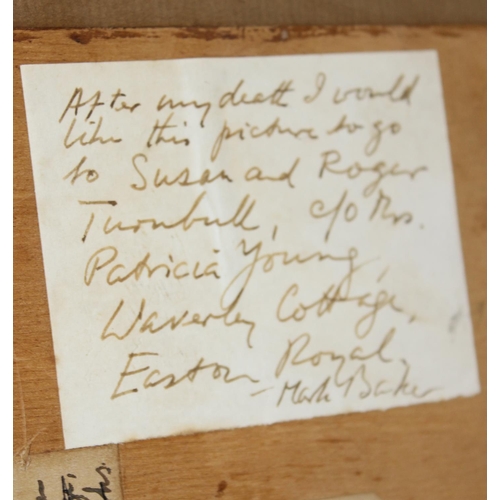 After my death I would
like this picture to go
to Susan and Roger
Turnbull, c/o Mrs.
Patricia Young,
Waverley Cottage,
Easton Royal.
- Mark Baker